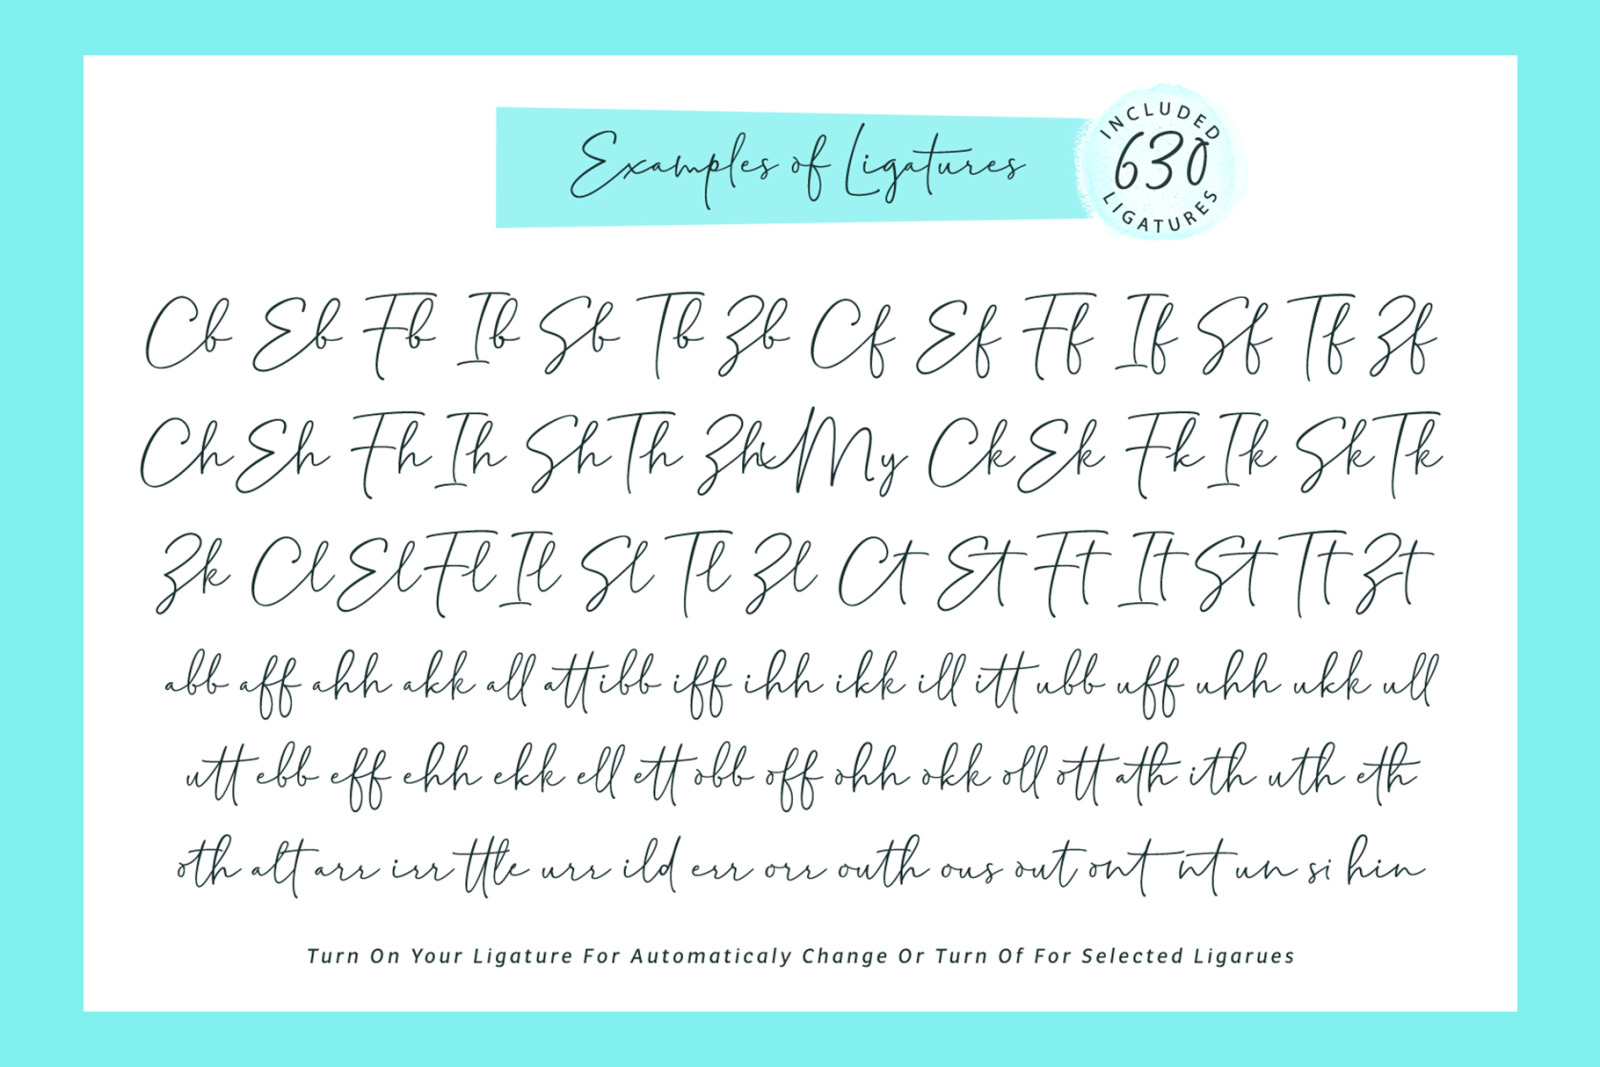 Examples of Ligatures
INCLUDED
630
LIGATURES
Cb Eb Fb Ib Sb Tb Zb Cf Ef Ff If Sf Tf Zf
Ch Eh Fh Ih Sh Th Zh My Ck Ek Fk Ik Sk Tk
Zk Cl El Fl Il Sl Tl Zl Ct Et Ft It St Tt Zt
abb aff ahh akk all att ibb iff ihh ikk ill itt ubb uff uhh ukk ull
utt ebb eff ehh ekk ell ett obb off ohh okk oll ott ath ith uth eth
oth alt arr irr ttle urr ild err orr outh ous out ont nt un si hin
Turn On Your Ligature For Automaticaly Change Or Turn Of For Selected Ligarues